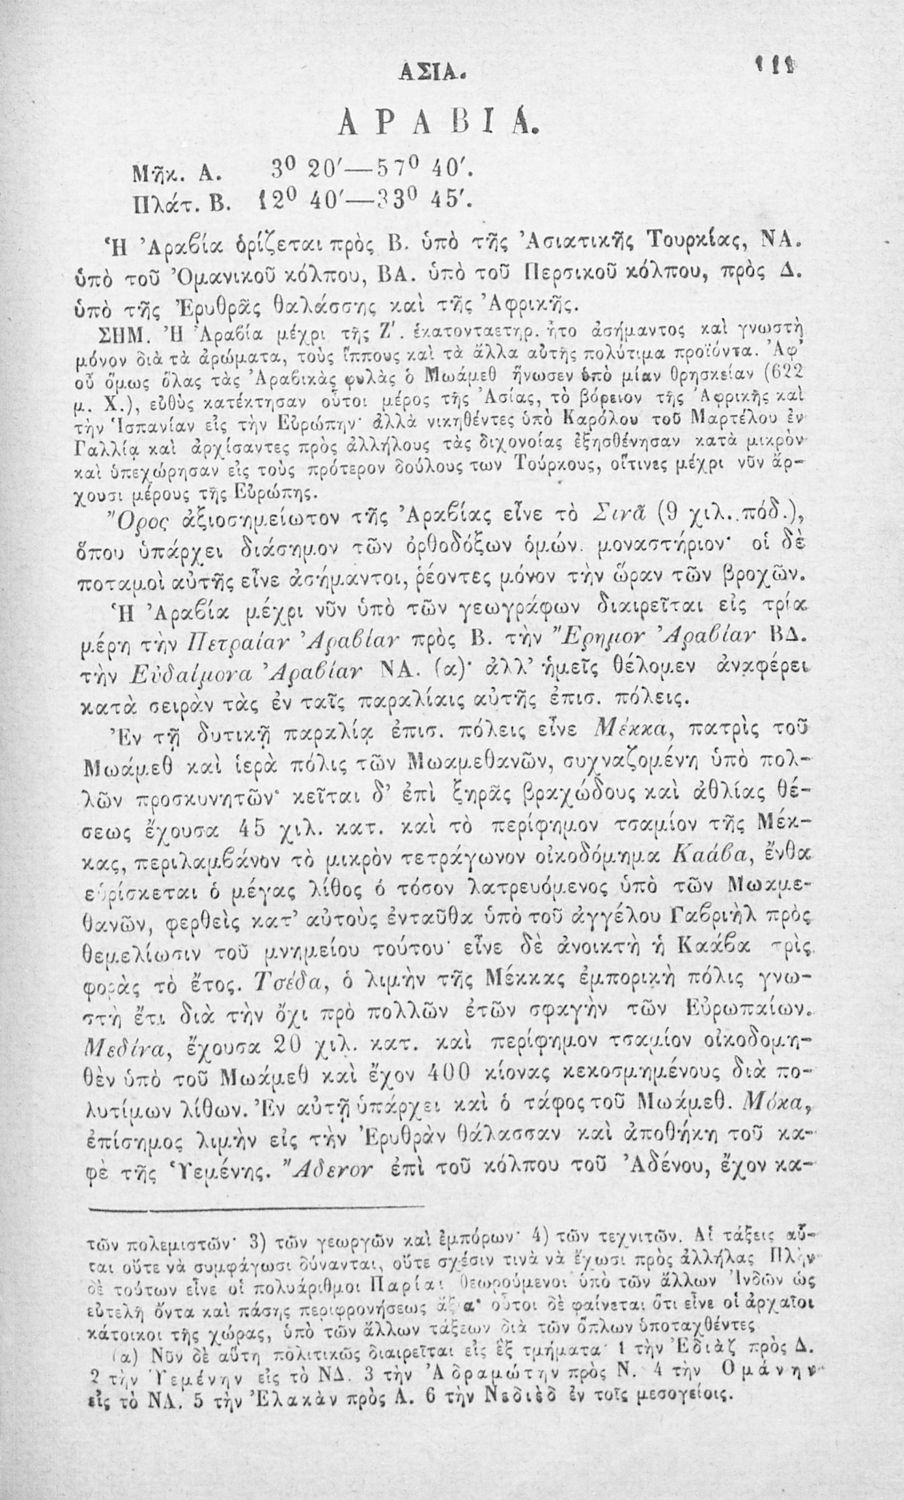 ΑΣΙΑ. 111
ΑΡΑΒΙΑ.
Μῆκ. Α. 3⁰ 20′—57⁰ 40′.
Πλάτ. Β. 12⁰ 40′—33⁰ 45′.
Ἡ Ἀραβία ὁρίζεται πρὸς Β. ὑπὸ τῆς Ἀσιατικῆς Τουρκίας, ΝΑ.
ὑπὸ τοῦ Ὀμανικοῦ κόλπου, ΒΑ. ὑπὸ τοῦ Περσικοῦ κόλπου, πρὸς Δ.
ὑπὸ τῆς Ἐρυθρᾶς θαλάσσης καὶ τῆς Ἀφρικῆς.
ΣΗΜ. Ἡ Ἀραβία μέχρι τῆς Ζ′. ἑκατονταετηρ. ἦτο ἀσήμαντος καὶ γνωστὴ
μόνον διὰ τὰ ἀρώματα, τοὺς ἵππους καὶ τὰ ἄλλα αὐτῆς πολύτιμα προϊόντα. Ἀφ᾽
οὗ ὅμως ὅλας τὰς Ἀραβικὰς φυλὰς ὁ Μωάμεθ ἥνωσεν ὑπὸ μίαν θρησκείαν (622
μ. Χ.), εὐθὺς κατέκτησαν οὗτοι μέρος τῆς Ἀσίας, τὸ βόρειον τῆς Ἀφρικῆς καὶ
τὴν Ἱσπανίαν εἰς τὴν Εὐρώπην· ἀλλὰ νικηθέντες ὑπὸ Καρόλου τοῦ Μαρτέλου ἐν
Γαλλίᾳ καὶ ἀρχίσαντες πρὸς ἀλλήλους τὰς διχονοίας ἐξησθένησαν κατὰ μικρὸν
καὶ ὑπεχώρησαν εἰς τοὺς πρότερον δούλους των Τούρκους, οἵτινες μέχρι νῦν ἄρ-
χουσι μέρους τῆς Εὐρώπης.
Ὄρος ἀξιοσημείωτον τῆς Ἀραβίας εἶνε τὸ Σινᾶ (9 χιλ. πόδ.),
ὅπου ὑπάρχει διάσημον τῶν ὀρθοδόξων ὁμών. μοναστήριον· οἱ δὲ
ποταμοὶ αὐτῆς εἶνε ἀσήμαντοι, ῥέοντες μόνον τὴν ὥραν τῶν βροχῶν.
Ἡ Ἀραβία μέχρι νῦν ὑπὸ τῶν γεωγράφων διαιρεῖται εἰς τρία
μέρη τὴν Πετραίαν Ἀραβίαν πρὸς Β. τὴν Ἔρημον Ἀραβίαν ΒΔ.
τὴν Εὐδαίμονα Ἀραβίαν ΝΑ. (α)· ἀλλ᾽ ἡμεῖς θέλομεν ἀναφέρει
κατὰ σειρὰν τὰς ἐν ταῖς παραλίαις αὐτῆς ἐπισ. πόλεις.
Ἐν τῇ δυτικῇ παραλίᾳ ἐπισ. πόλεις εἶνε Μέκκα, πατρὶς τοῦ
Μωάμεθ καὶ ἱερὰ πόλις τῶν Μωαμεθανῶν, συχναζομένη ὑπὸ πολ-
λῶν προσκυνητῶν· κεῖται δ᾽ ἐπὶ ξηρᾶς βραχώδους καὶ ἀθλίας θέ-
σεως ἔχουσα 45 χιλ. κατ. καὶ τὸ περίφημον τσαμίον τῆς Μέκ-
κας, περιλαμβάνον τὸ μικρὸν τετράγωνον οἰκοδόμημα Καάβα, ἔνθα
εὑρίσκεται ὁ μέγας λίθος ὁ τόσον λατρευόμενος ὑπὸ τῶν Μωαμε-
θανῶν, φερθεὶς κατ᾽ αὐτοὺς ἐνταῦθα ὑπὸ τοῦ ἀγγέλου Γαβριὴλ πρὸς
θεμελίωσιν τοῦ μνημείου τούτου· εἶνε δὲ ἀνοικτὴ ἡ Καάβα τρὶς
φορὰς τὸ ἔτος. Τσέδα, ὁ λιμὴν τῆς Μέκκας ἐμπορικὴ πόλις γνω-
στὴ ἔτι διὰ τὴν ὄχι πρὸ πολλῶν ἐτῶν σφαγὴν τῶν Εὐρωπαίων.
Μεδίνα, ἔχουσα 20 χιλ. κατ. καὶ περίφημον τσαμίον οἰκοδομη-
θὲν ὑπὸ τοῦ Μωάμεθ καὶ ἔχον 400 κίονας κεκοσμημένους διὰ πο-
λυτίμων λίθων. Ἐν αὐτῇ ὑπάρχει καὶ ὁ τάφος τοῦ Μωάμεθ. Μόκα,
ἐπίσημος λιμὴν εἰς τὴν Ἐρυθρὰν θάλασσαν καὶ ἀποθήκη τοῦ κα-
φὲ τῆς Ὑεμένης. Ἄδενον ἐπὶ τοῦ κόλπου τοῦ Ἀδένου, ἔχον κα-
τῶν πολεμιστῶν· 3) τῶν γεωργῶν καὶ ἐμπόρων· 4) τῶν τεχνιτῶν. Αἱ τάξεις αὗ-
ται οὔτε νὰ συμφάγωσι δύνανται, οὔτε σχέσιν τινὰ νὰ ἔχωσι πρὸς ἀλλήλας Πλὴν
δὲ τούτων εἶνε οἱ πολυάριθμοι Παρίαι θεωρούμενοι ὑπὸ τῶν ἄλλων Ἰνδῶν ὡς
εὐτελῆ ὄντα καὶ πάσης περιφρονήσεως ἄξια· οὗτοι δὲ φαίνεται ὅτι εἶνε οἱ ἀρχαῖοι
κάτοικοι τῆς χώρας, ὑπὸ τῶν ἄλλων τάξεων διὰ τῶν ὅπλων ὑποταχθέντες
(α) Νῦν δὲ αὕτη πολιτικῶς διαιρεῖται εἰς ἓξ τμήματα 1 τὴν Ἐδιὰζ πρὸς Δ.
2 τὴν Ὑεμένην εἰς τὸ ΝΔ. 3 τὴν Ἀδραμώτην πρὸς Ν. 4 τὴν Ὀμάνην
εἰς τὸ ΝΑ. 5 τὴν Ἐλακὰν πρὸς Α. 6 τὴν Νεδιὲδ ἐν τοῖς μεσογείοις.